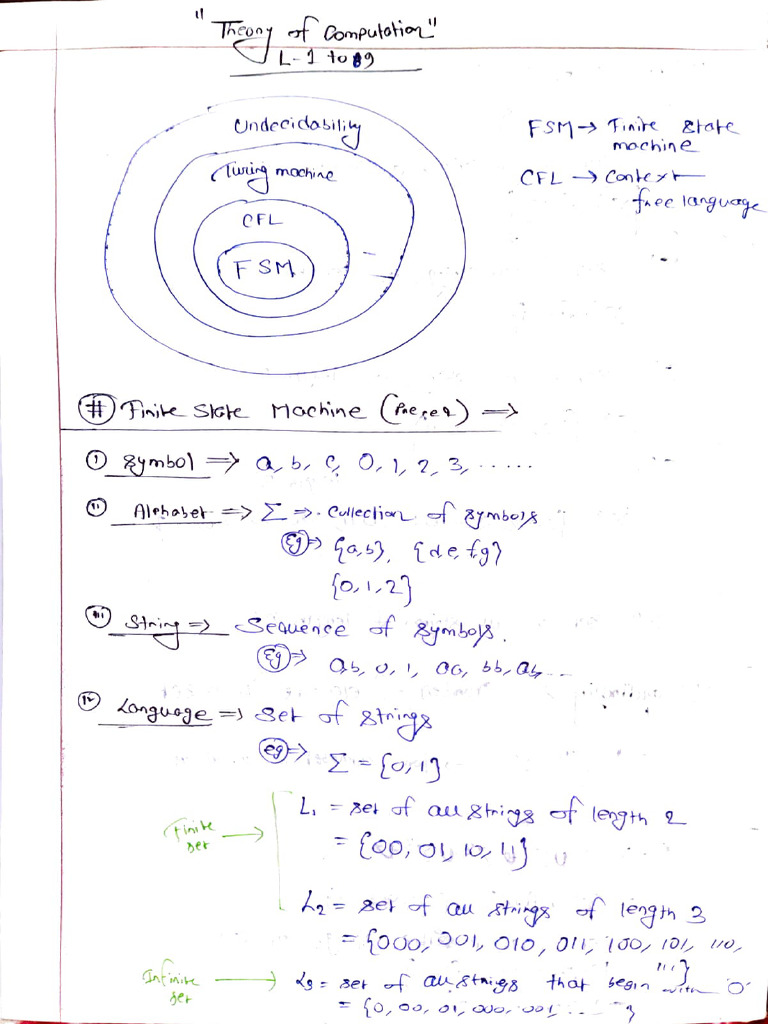 "Theory of Computation"
L-1 to 9
Undecidability
Turing machine
CFL
FSM
FSM → Finite state
machine
CFL → Context
free language
# Finite State Machine (Prereq) ⇒
i) Symbol ⇒ a, b, c, 0, 1, 2, 3, ......
ii) Alphabet ⇒ Σ ⇒ Collection of symbols
Eg ⇒ {a,b}, {d,e,f,g}
{0,1,2}
iii) String ⇒ Sequence of symbols.
Eg ⇒ a,b, 0, 1, aa, bb, ab, ...
iv) Language ⇒ Set of strings
eg ⇒ Σ = {0,1}
Finite
set →
L₁ = set of all strings of length 2
= {00, 01, 10, 11}
L₂ = set of all strings of length 3
= {000, 001, 010, 011, 100, 101, 110,
111}
Infinite
set →
L3 = set of all strings that begin with '0'
= {0, 00, 01, 000, 001, ..... }